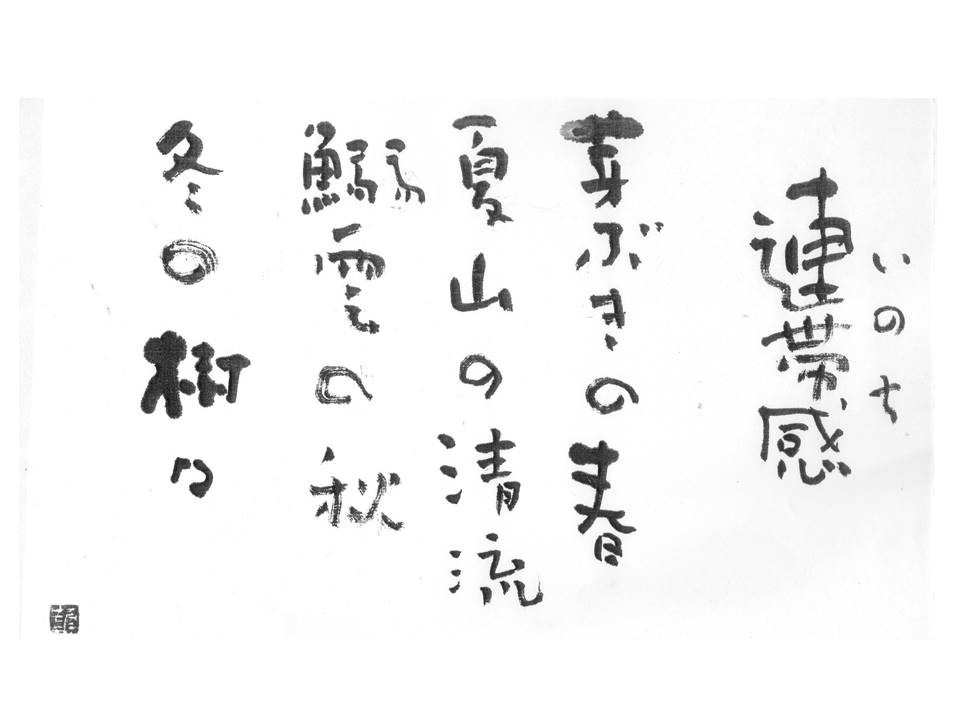 いのち
連帯感
芽ぶきの春
夏山の清流
鰯雲の秋
冬の樹々